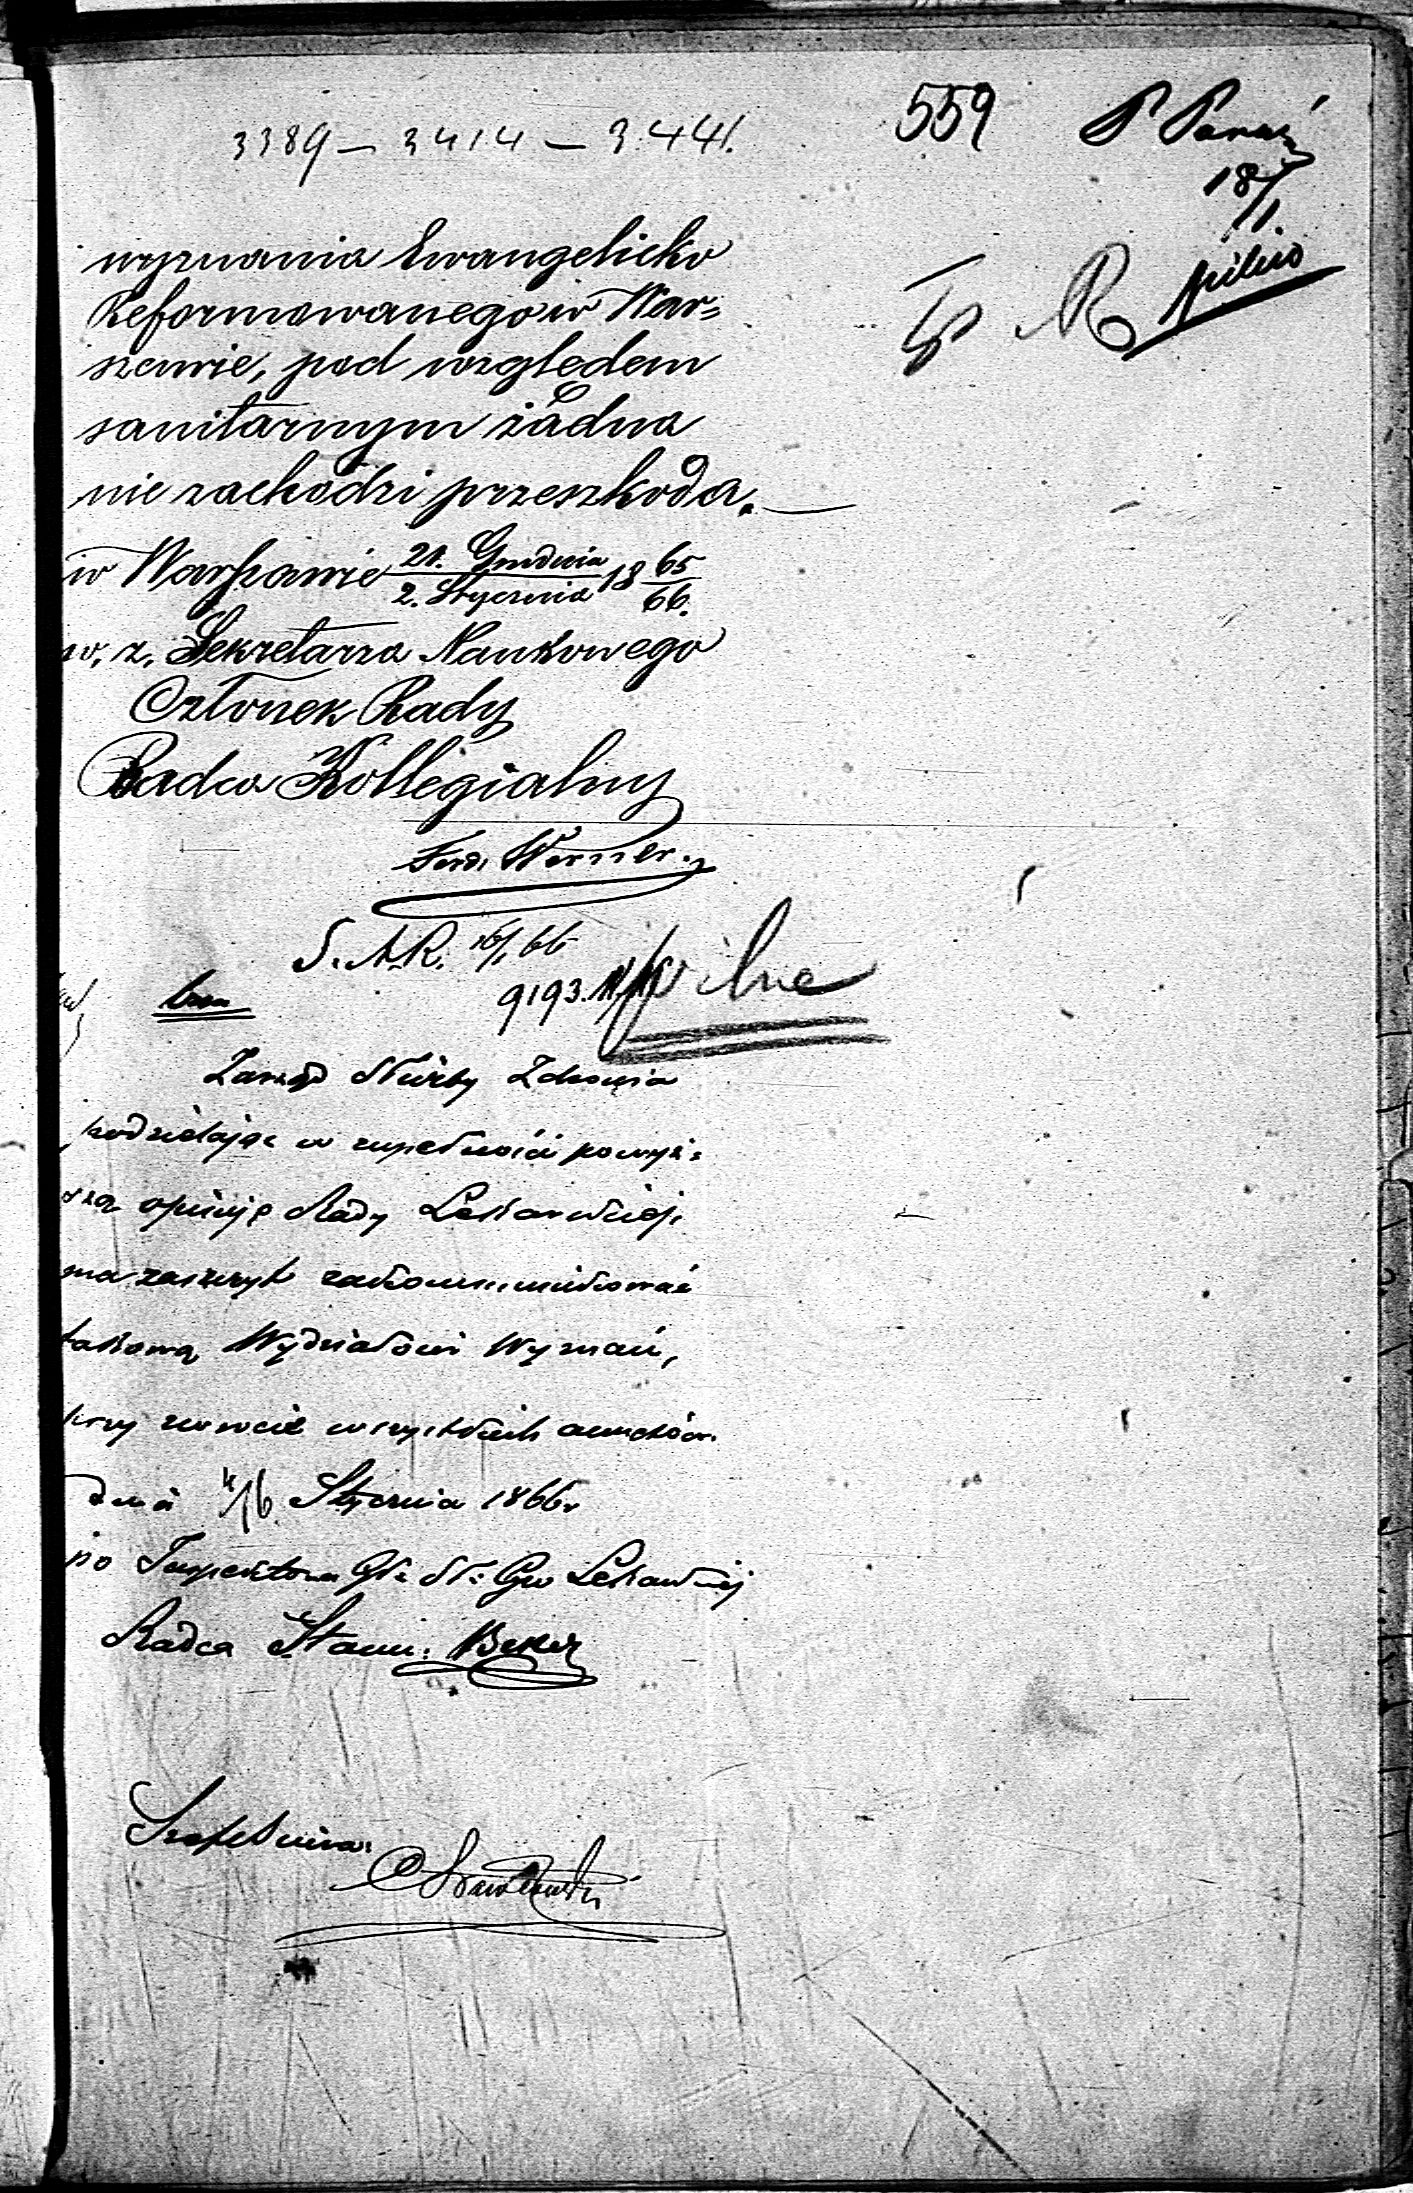 559
3389 – 3414 – 3441.
18/1
pilno
wyznania Ewangelicko
Reformowanego w War=
szawie, pod względem
sanitarnym żadna
nie zachodzi przeszkoda.
w Warszawie 21. Grudnia / 2. Stycznia 18 65/66.
w. z. Sekretarza Naukowego
Członek Rady
Radca Kollegialny
Ferd. Werner.
16/1 66
9193. pilne
Zarząd Służby Zdrowia
podzielając w zupełności powyż=
szą opiniję Rady Lekarskiej,
ma zaszczyt zakommunikować
takową Wydziałowi Wyznań,
przy zwrocie wszystkich annexów.
dnia 4/16 Stycznia 1866.
po Inspektora Gł. Sł. Cyw Lekarskiej
Radca Stanu. Beker
Szef Biura